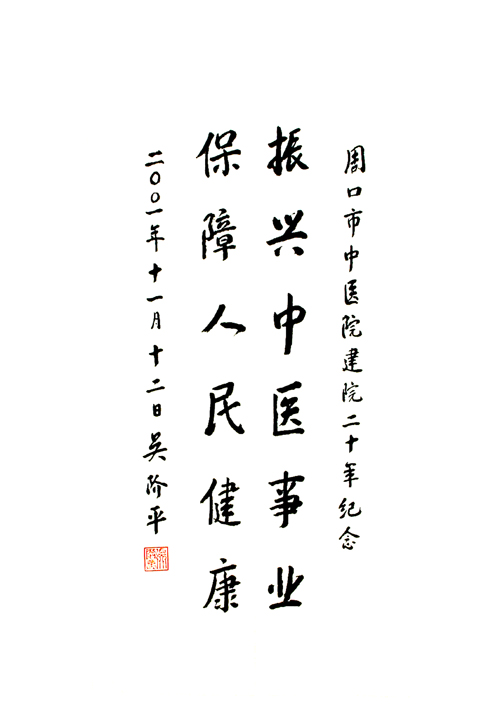 周口市中医院建院二十年纪念
振兴中医事业
保障人民健康
二〇〇一年十一月十二日吴阶平